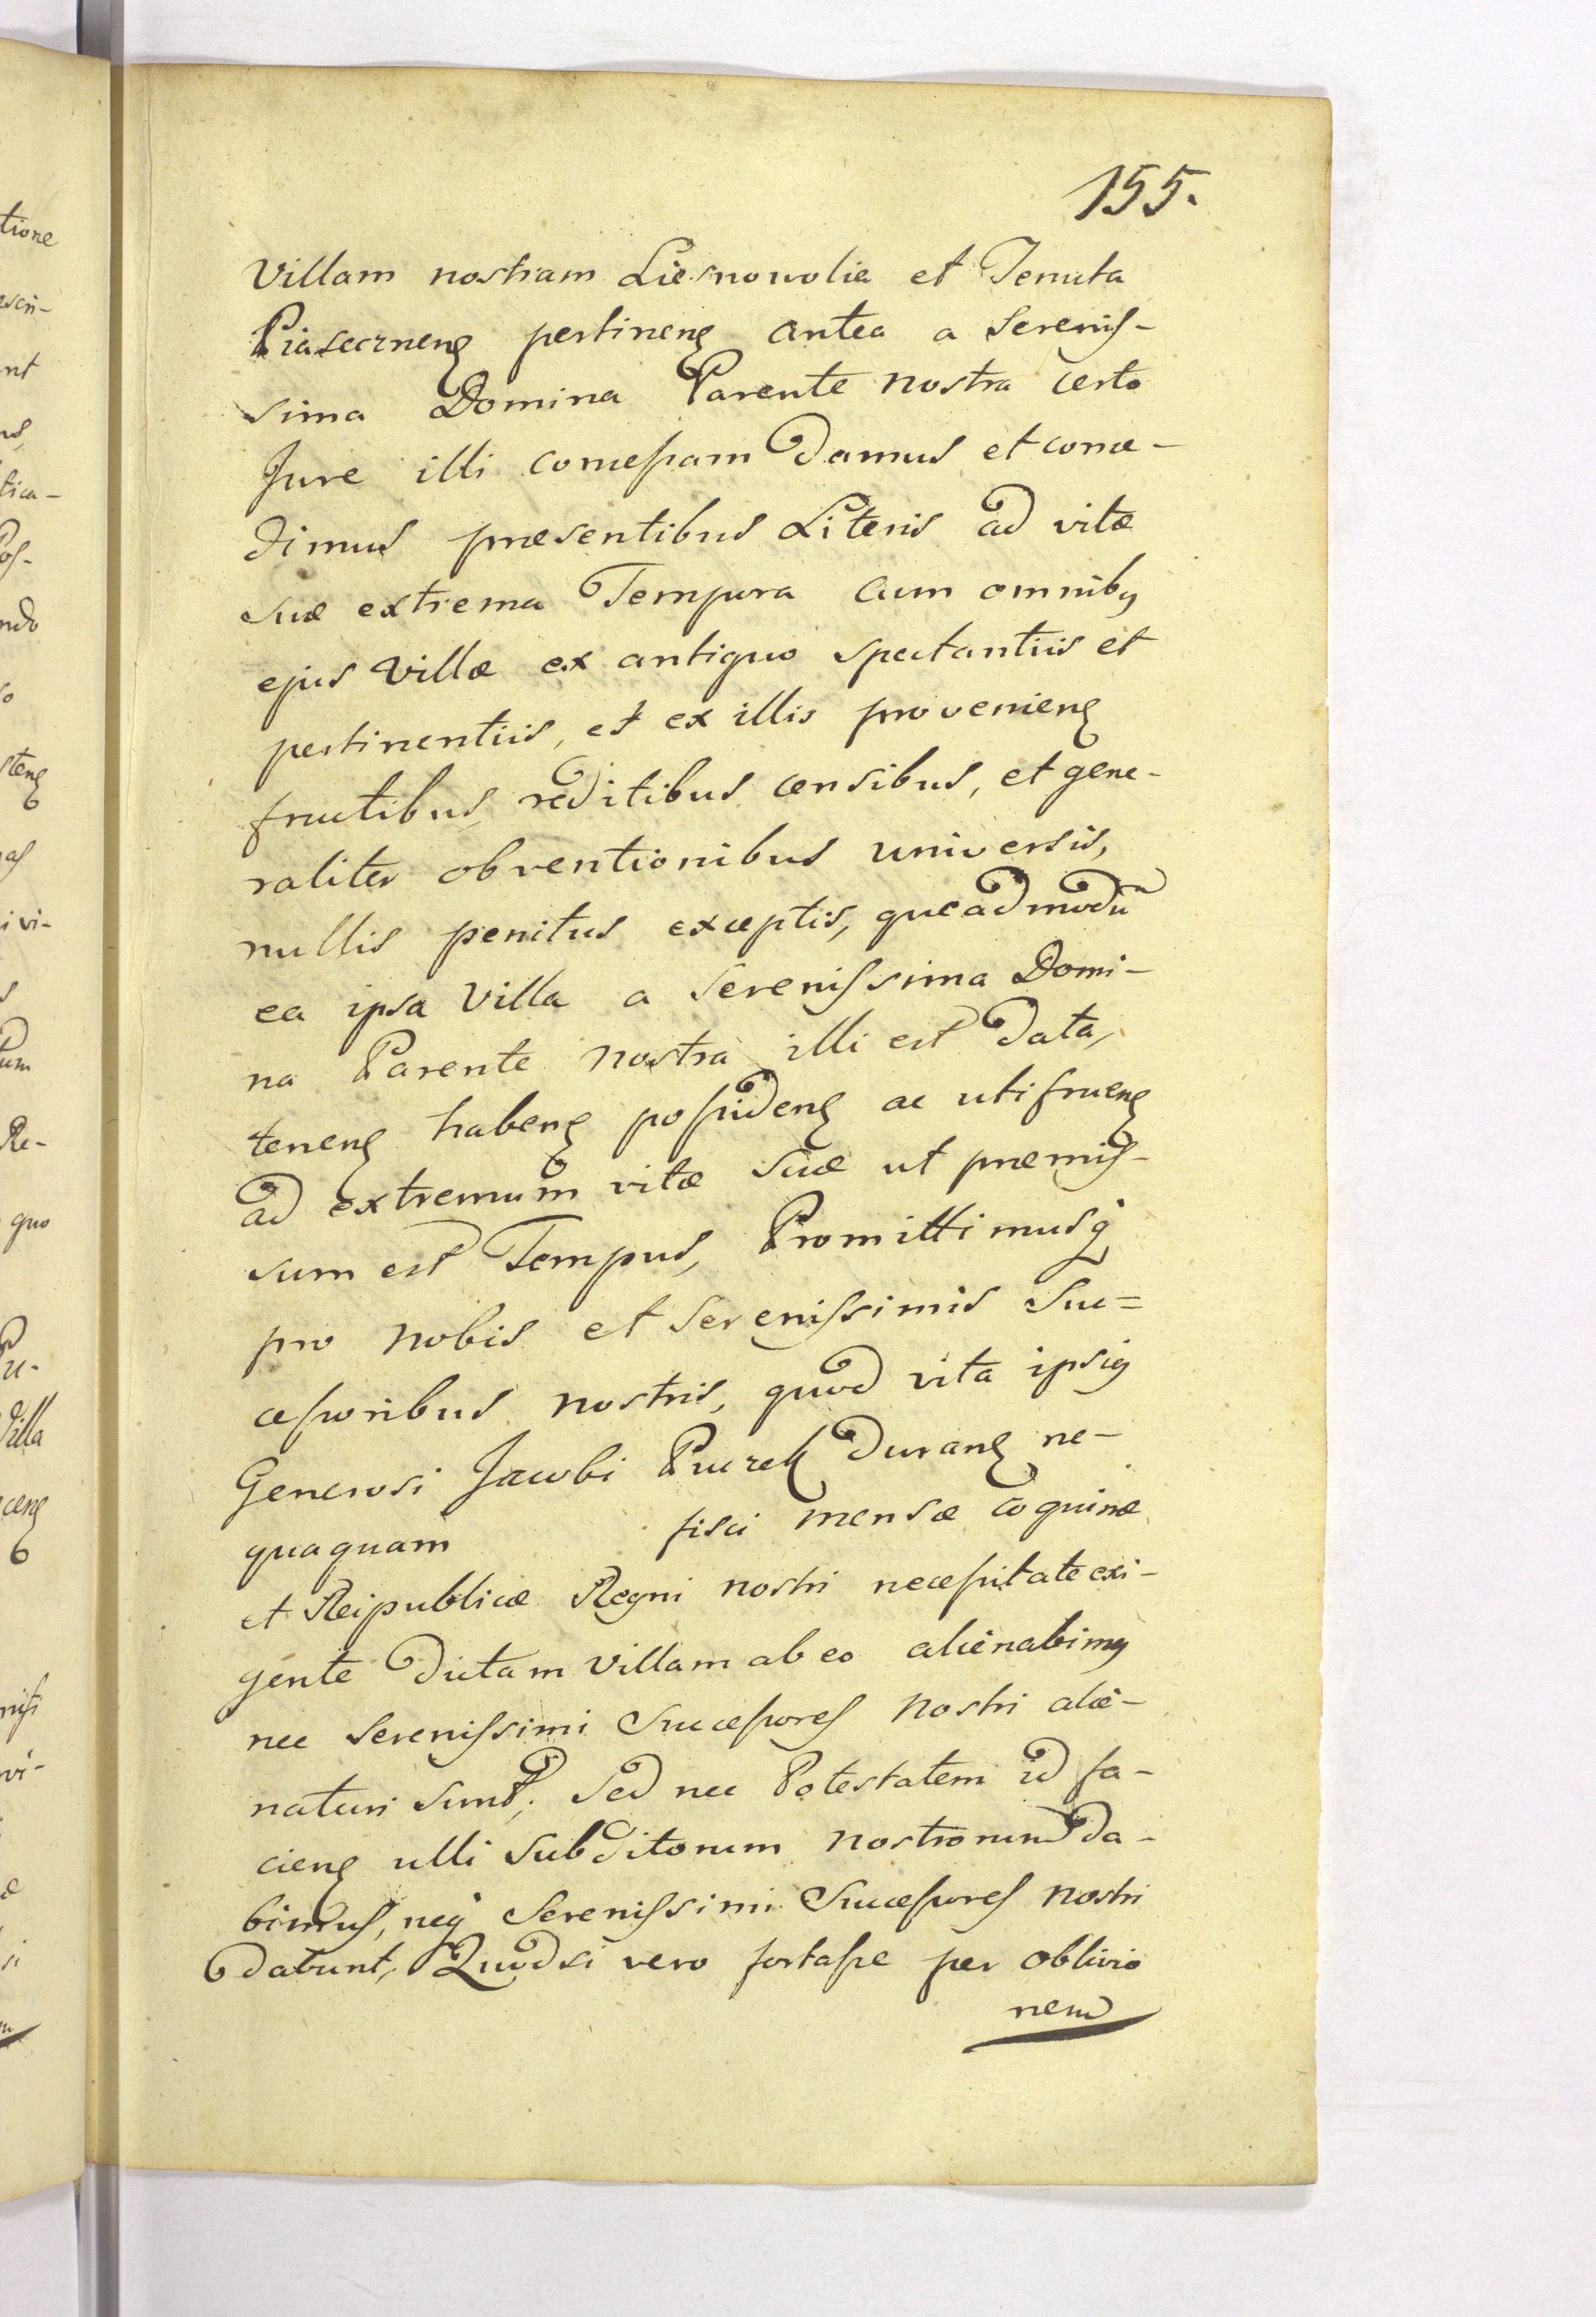 155.
Villam nostram Liesnowolia et Tenuta
Piasecznenꝭ pertinenꝭ antea a Sereniſ-
sima Domina Parente nostra certo
Jure illi conceſsam damus et conce-
dimus præsentibus Literis ad vitæ
suæ extrema Tempora cum omnibꝰ
ejus Villæ ex antiquo spectantiis et
pertinentiis, et ex illis provenienꝭ
fructibus, reditibus censibus, et gene-
raliter obventionibus universis,
nullis penitus exceptis, queadmodū
ea ipsa Villa a Sereniſsima Domi-
na Parente nostra illi est data,
tenenꝭ habenꝭ poſsidenꝭ ac utifruenꝭ
ad extremum vitæ suæ ut præmiſ-
sum est Tempus, Promittimusq́
pro nobis et Sereniſsimis Suc=
ceſsoribus nostris, quod vita ipsiꝰ
Generosi Jacobi Pucrek duranꝭ ne-
quaquam fisci mensæ coquinæ
et Reipublicæ Regni nostri neceſsitate exi-
gente dictam Villam ab eo alienabimꝰ
nec Sereniſsimi Succeſsoreſ nostri alie-
naturi sunt; Sed nec Potestatem id fa-
cienꝭ ulli Subditorum nostrorum da-
bimuſ, neq́ Sereniſsimi Succeſsoreſ nostri
dabunt, Quodsi vero fortaſse per oblivio
nem